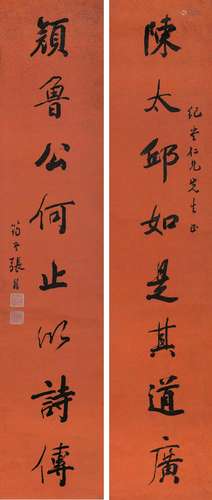 仁兄先生正
陳太邱如是其道廣
顏魯公何止以詩傳
張